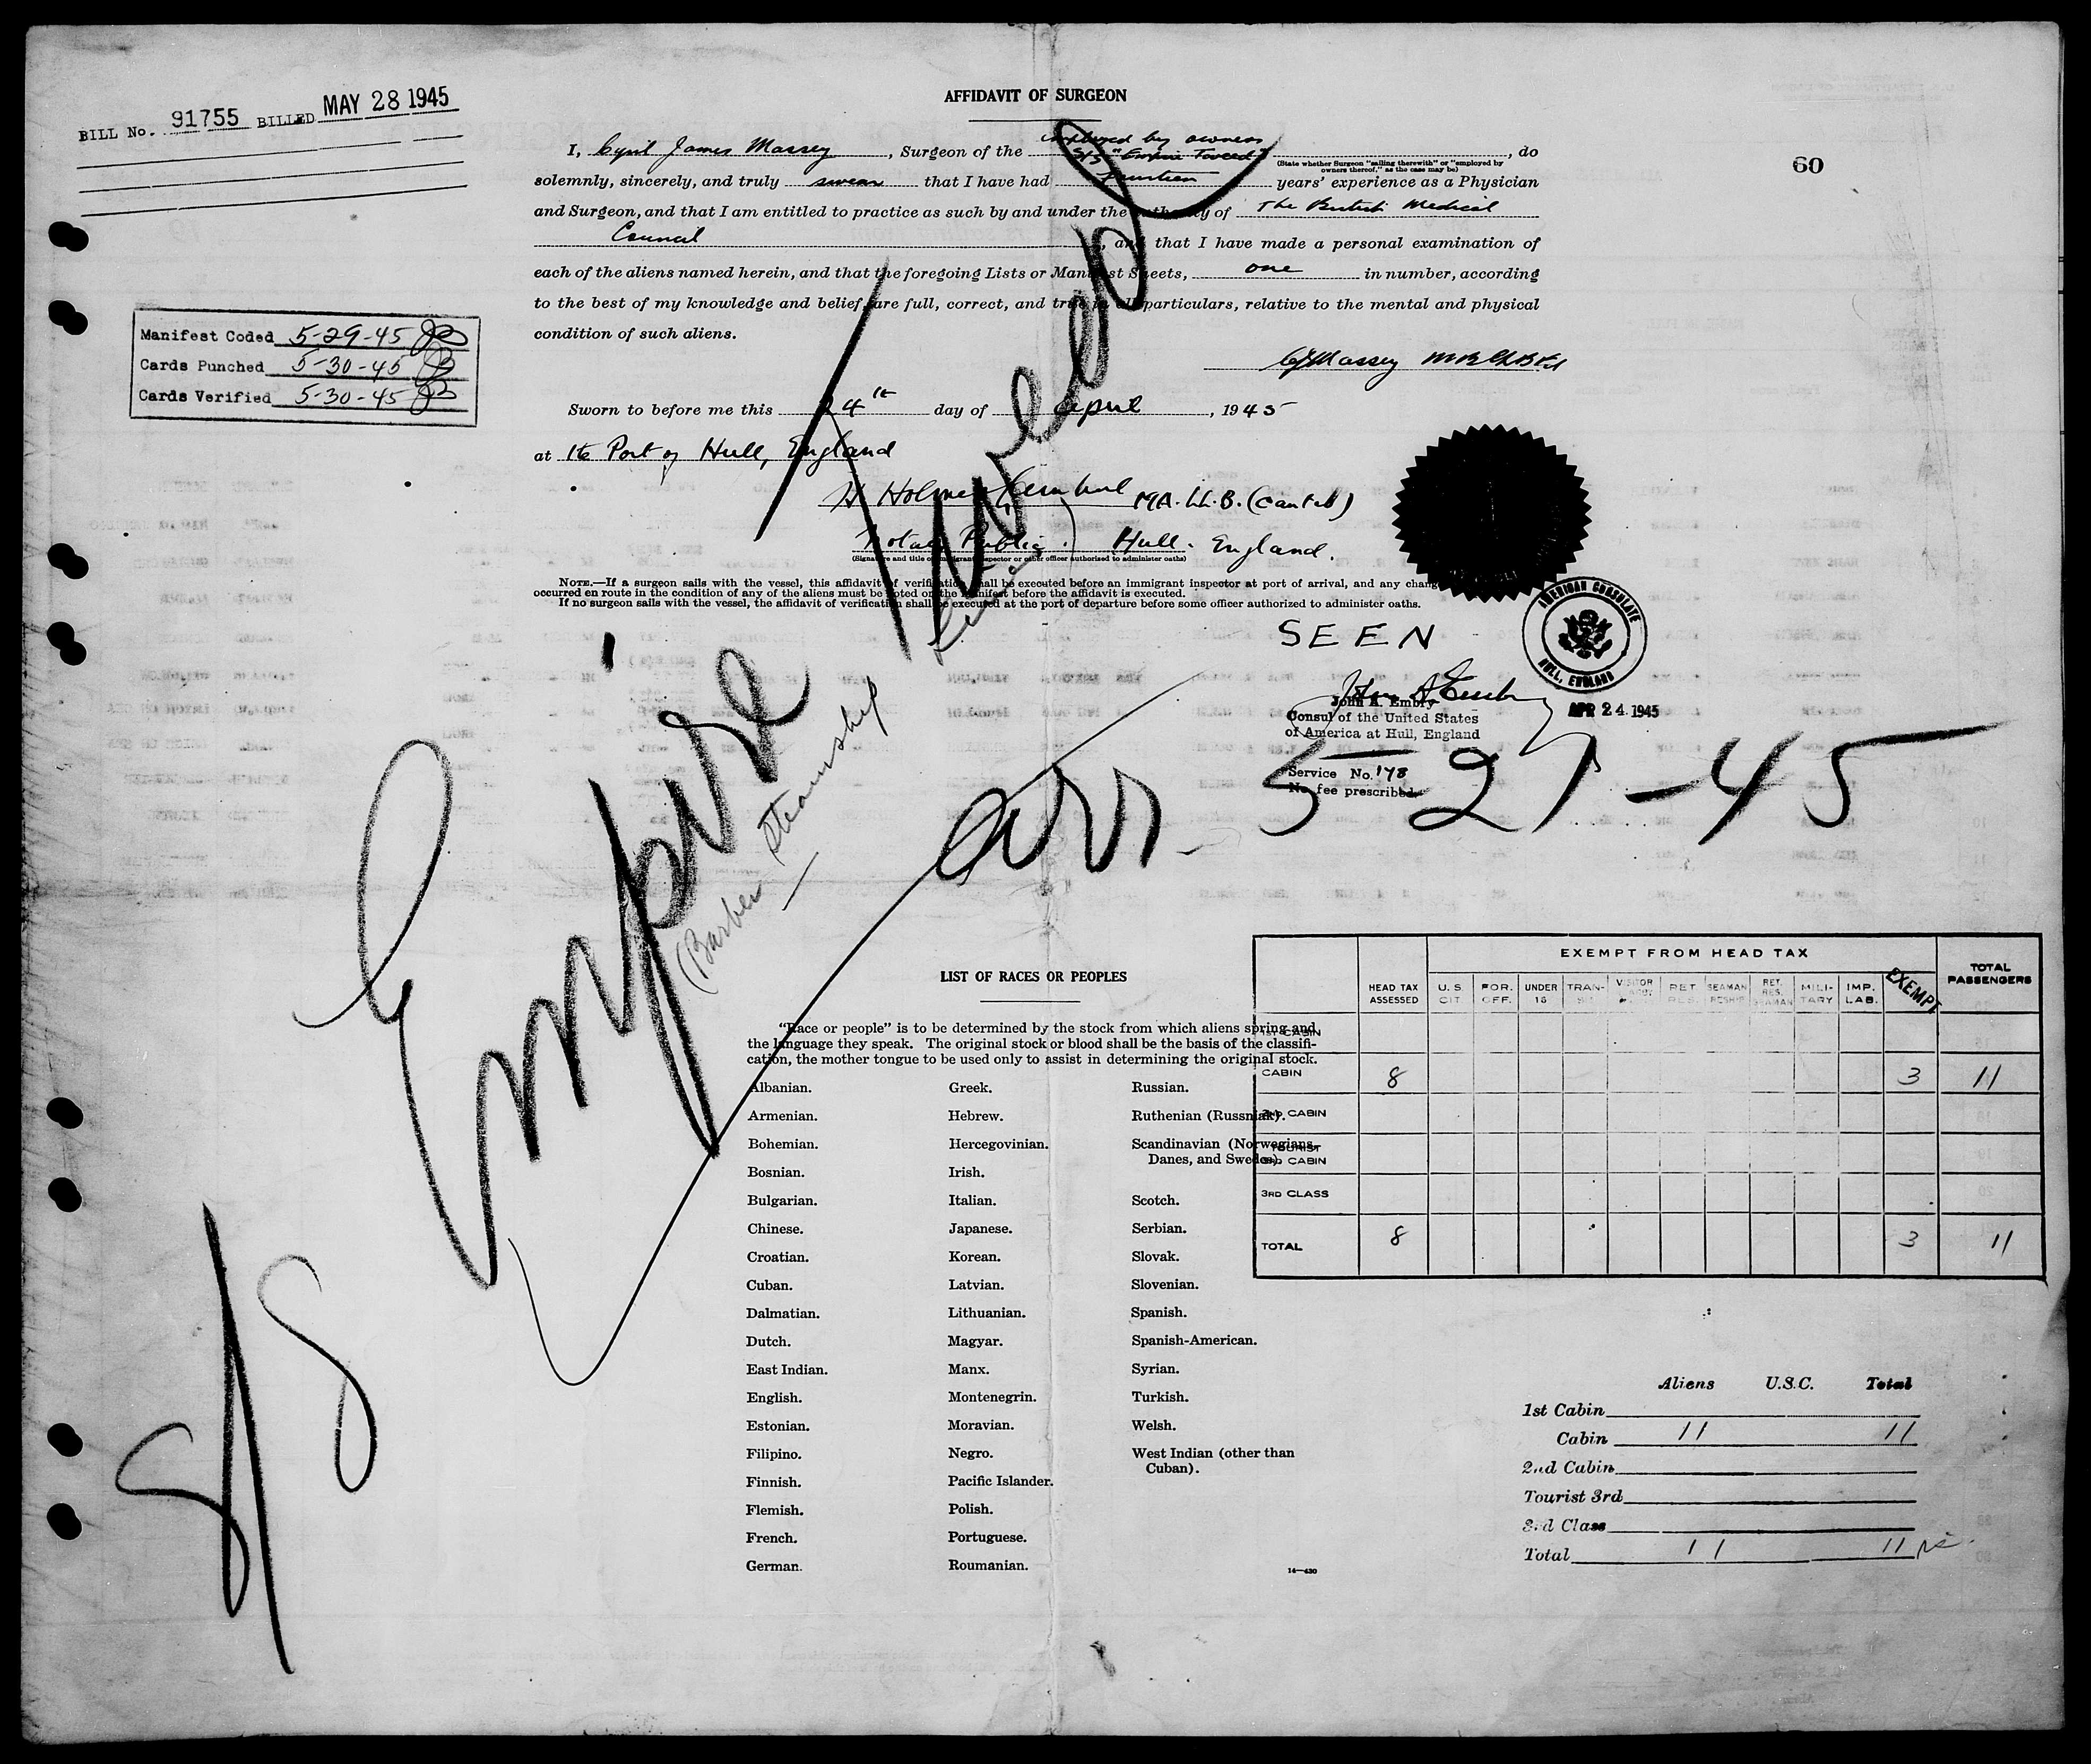 BILL No. 91755 BILLED MAY 28 1945
AFFIDAVIT OF SURGEON
60
employed by owners
I, Cyril James Massey, Surgeon of the S/S "Empire Tweed", do
(State whether Surgeon "sailing therewith" or "employed by
owners thereof," as the case may be)
solemnly, sincerely, and truly swear that I have had fourteen years' experience as a Physician
and Surgeon, and that I am entitled to practice as such by and under the authority of The British Medical
Council, and that I have made a personal examination of
each of the aliens named herein, and that the foregoing Lists or Manifest Sheets, one in number, according
to the best of my knowledge and belief are full, correct, and true in all particulars, relative to the mental and physical
condition of such aliens.
Manifest Coded 5-29-45
Cards Punched 5-30-45
Cards Verified 5-30-45
CJMassey
Sworn to before me this 24th day of April, 1945
at the Port of Hull, England
H Holmes M.A. LL.B. (Cantab)
Notary Public. Hull. England.
(Signature and title of immigrant inspector or other officer authorized to administer oaths)
NOTE.—If a surgeon sails with the vessel, this affidavit of verification shall be executed before an immigrant inspector at port of arrival, and any change
occurred en route in the condition of any of the aliens must be noted on the manifest before the affidavit is executed.
If no surgeon sails with the vessel, the affidavit of verification shall be executed at the port of departure before some officer authorized to administer oaths.
SEEN
AMERICAN CONSULATE
HULL, ENGLAND
John A. Embry
Consul of the United States
of America at Hull, England
APR 24 1945
Service No. 178
No fee prescribed
S/S Empire Tweed
(Barber Steamship Line)
arr. 5-27-45
LIST OF RACES OR PEOPLES
"Race or people" is to be determined by the stock from which aliens spring and
the language they speak. The original stock or blood shall be the basis of the classifi-
cation, the mother tongue to be used only to assist in determining the original stock.
Albanian. Greek. Russian.
Armenian. Hebrew. Ruthenian (Russniak).
Bohemian. Hercegovinian. Scandinavian (Norwegians,
Danes, and Swedes).
Bosnian. Irish.
Bulgarian. Italian. Scotch.
Chinese. Japanese. Serbian.
Croatian. Korean. Slovak.
Cuban. Latvian. Slovenian.
Dalmatian. Lithuanian. Spanish.
Dutch. Magyar. Spanish-American.
East Indian. Manx. Syrian.
English. Montenegrin. Turkish.
Estonian. Moravian. Welsh.
Filipino. Negro. West Indian (other than
Cuban).
Finnish. Pacific Islander.
Flemish. Polish.
French. Portuguese.
German. Roumanian.
14—430
EXEMPT FROM HEAD TAX
HEAD TAX ASSESSED U.S. CIT. FOR. OFF. UNDER 16 TRAN-SIT VISITOR RET. RES. SEAMAN RESHIP RET. RES. SEAMAN MILI-TARY IMP. LAB. EXEMPT TOTAL PASSENGERS
1ST CABIN
CABIN 8 3 11
2ND CABIN
TOURIST
3RD CABIN
3RD CLASS
TOTAL 8 3 11
Aliens U.S.C. Total
1st Cabin
Cabin 11 11
2nd Cabin
Tourist 3rd
3rd Class
Total 11 11